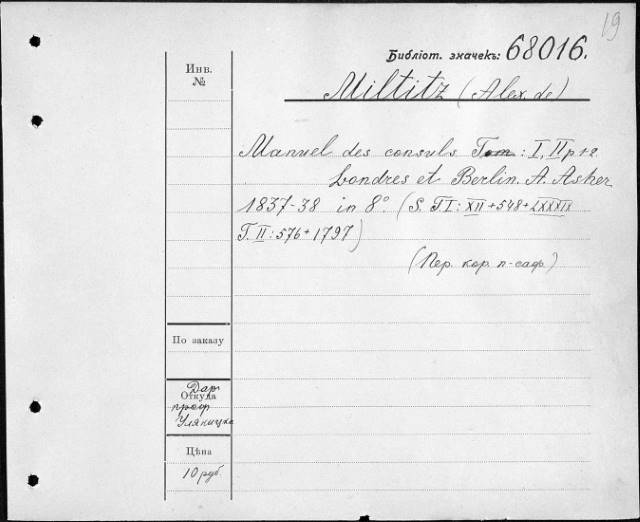 19
Библіот. значекъ: 68016.
Инв.
№
Miltitz (Alex. de)
Manuel des consuls Tom: I, II p+2
Londres et Berlin. A. Asher
1837-38 in 8°. (S. TI: XII+548+LXXXIX
T. II: 576+1797)
(Пер. кор. п-саф.)
По заказу
Откуда
Дар
проф
Уляницка
Цѣна
10 руб.